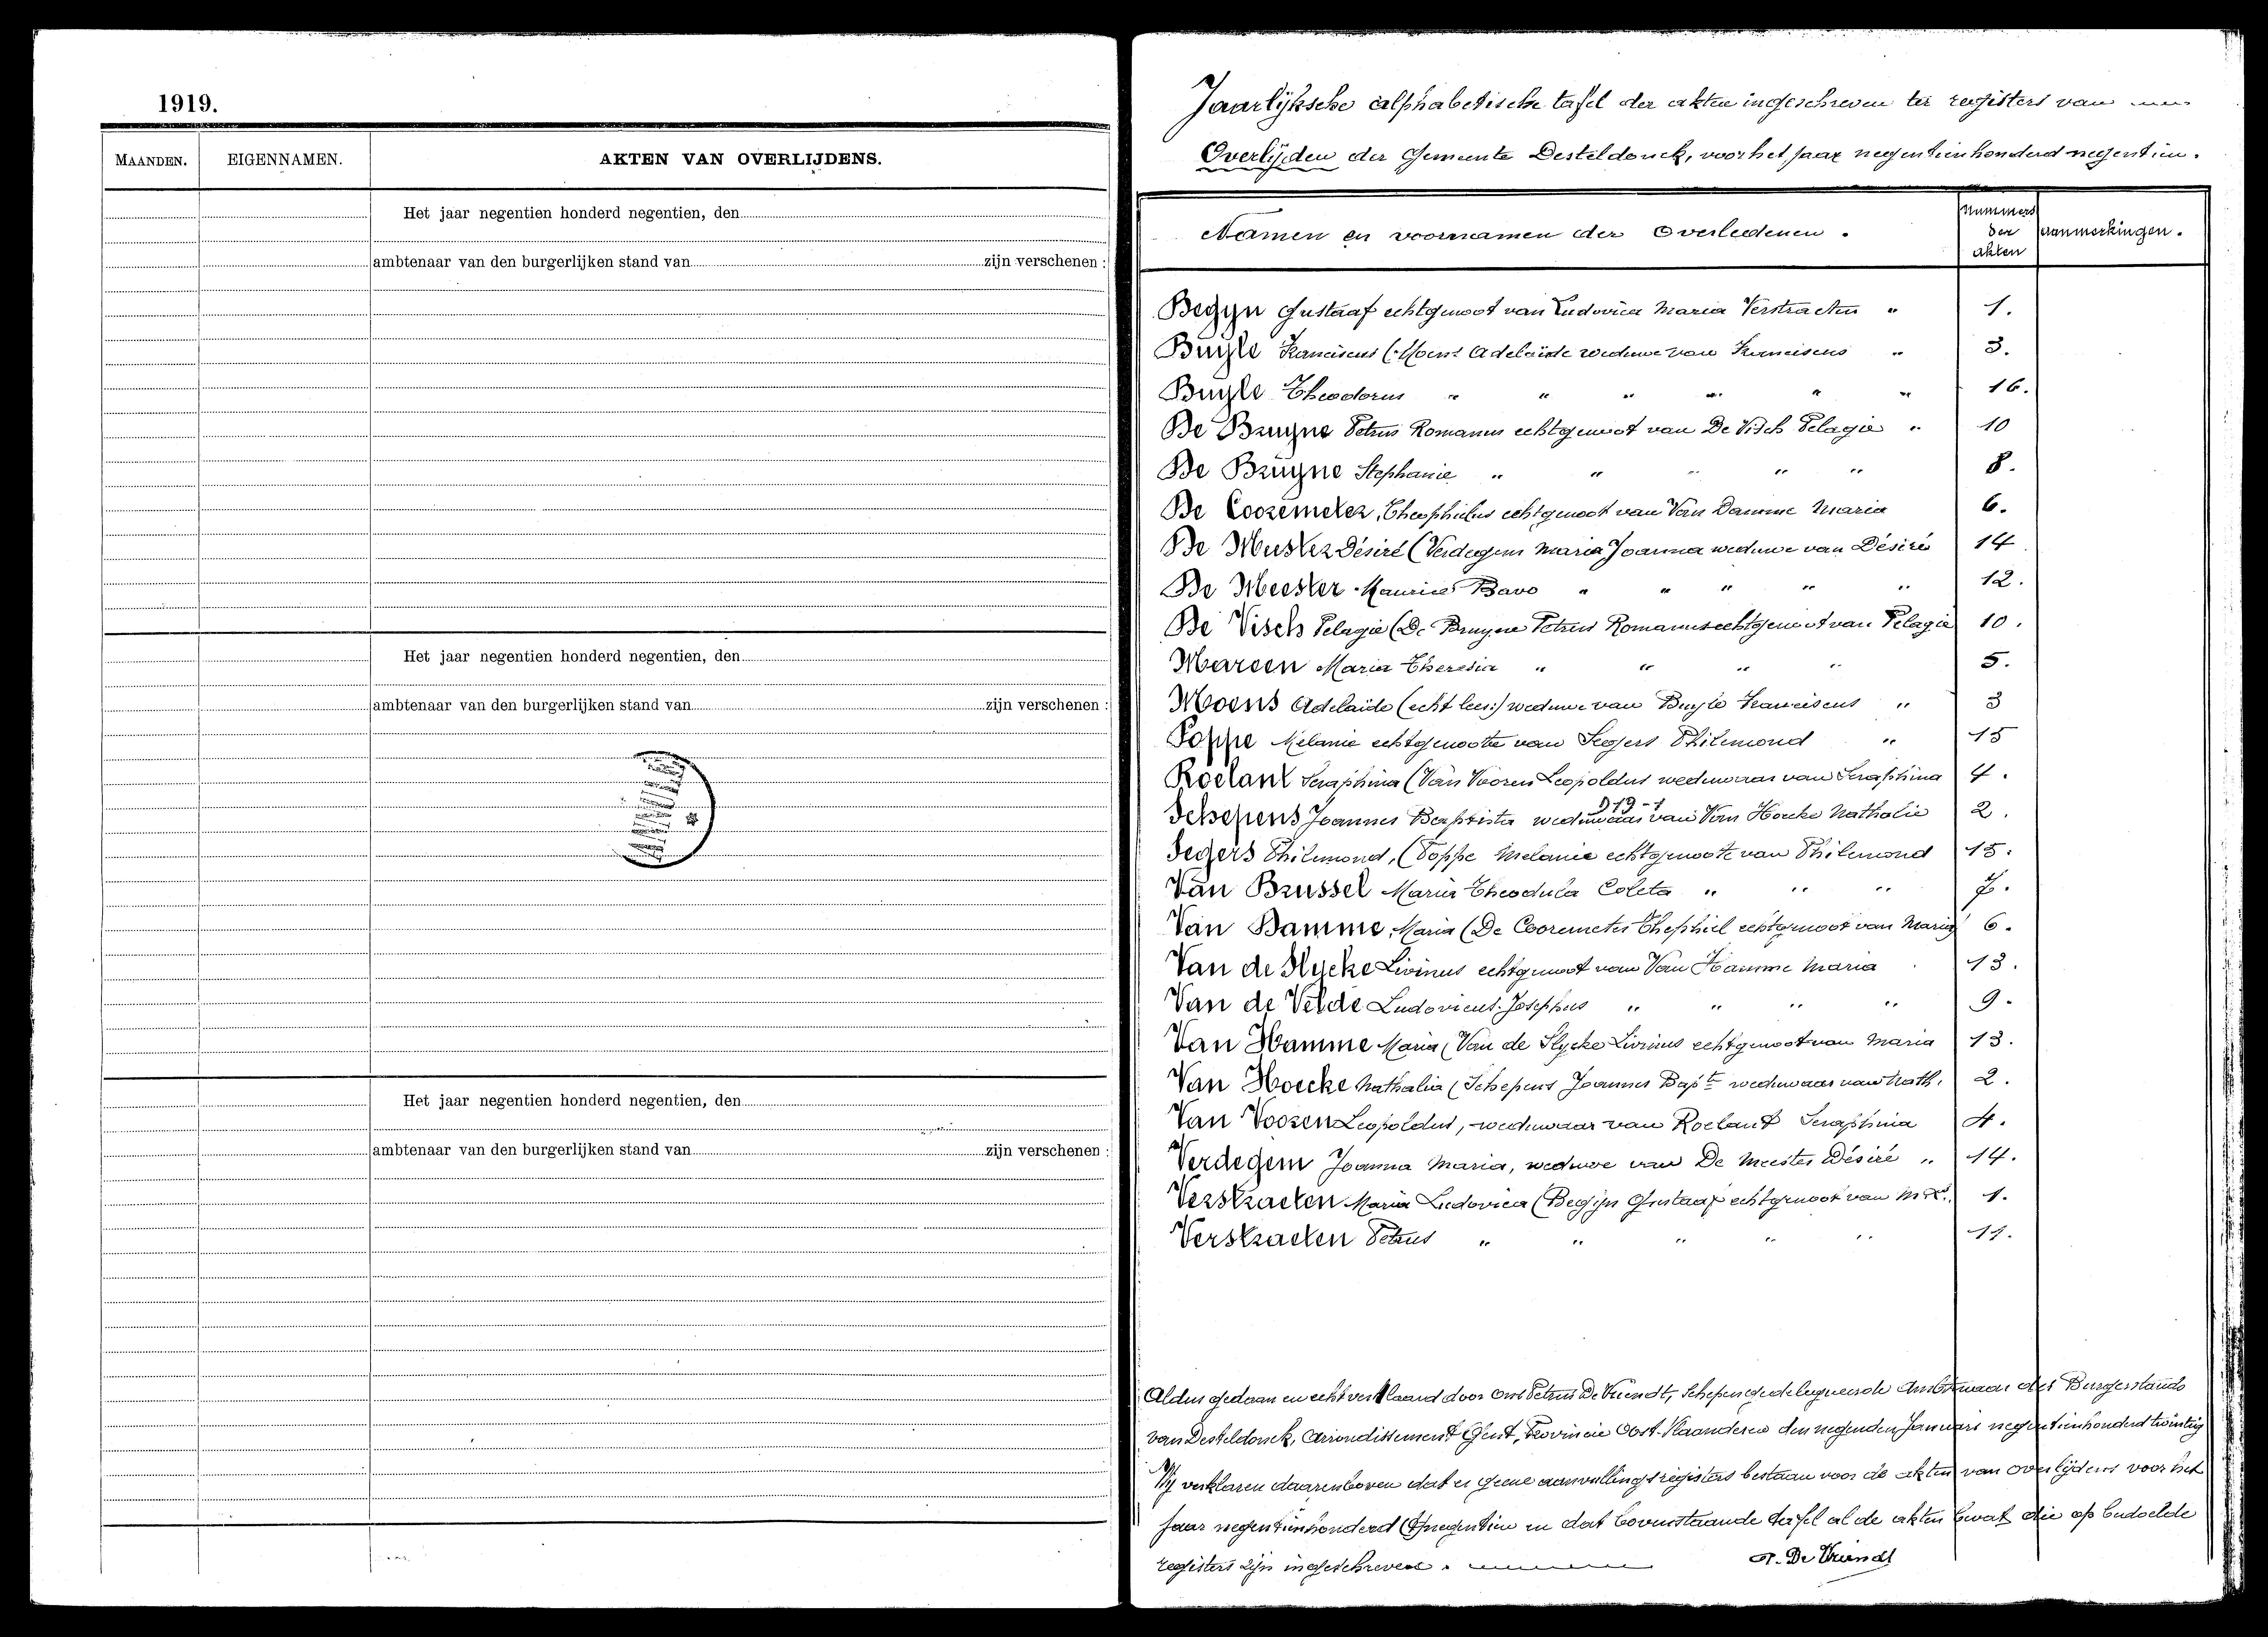 1919.
MAANDEN. EIGENNAMEN. AKTEN VAN OVERLIJDENS.
Het jaar negentien honderd negentien, den
ambtenaar van den burgerlijken stand van zijn verschenen :
Het jaar negentien honderd negentien, den
ambtenaar van den burgerlijken stand van zijn verschenen :
Het jaar negentien honderd negentien, den
ambtenaar van den burgerlijken stand van zijn verschenen :
Jaarlijksche alphabetische tafel der akten ingeschreven ter registers van
Overlijden der Gemeente Desteldonck, voor het jaar negentienhonderd negentien.
Namen en voornamen der Overledenen. nummers der akten aanmerkingen.
Begyn Gustaaf echtgenoot van Ludovica Maria Verstraeten " 1.
Buyle Franciscus (Moens Adelaïde weduwe van Franciscus " 3.
Buyle Theodorus " " " " " " 16.
De Bruyne Petrus Romanus echtgenoot van De Visch Pelagie " 10
De Bruyne Stephanie " " " " " 8.
De Cooremeter, Theophilus echtgenoot van Van Damme Maria 6.
De Muster Désiré (Verdegem Maria Joanna weduwe van Désiré 14
De Meester Maurice Bavo " " " " " 12.
De Visch Pelagie (De Bruyne Petrus Romanus echtgenoot van Pelagie 10.
Mareen Maria Theresia " " " " 5.
Moens Adelaïde (echt lees:) weduwe van Buyle Franciscus " 3
Poppe Melanie echtgenoote van Segers Philemond " 15
Roelant Seraphina (Van Vooren Leopoldus weduwaar van Seraphina 4.
Schepens Joannes Baptista weduwaar van Van Hoecke Nathalie 2.
919-1
Segers Philemond, (Poppe Melanie echtgenoote van Philemond 15.
Van Brussel Maria Theodula Coleta " " " 7.
Van Damme, Maria (De Cooremeter Thephiel echtgenoot van Maria) 6.
Van de Slycke Livinus echtgenoot van Van Hamme Maria 13.
Van de Velde Ludovicus Josephus " " " " 9.
Van Hamme Maria (Van de Slycke Livinus echtgenoot van Maria 13.
Van Hoecke Nathalia (Schepens Joannes Bapte weduwaar van Nath. 2.
Van Vooren Leopoldus, weduwaar van Roelant Seraphina 4.
Verdegem Joanna Maria, weduwe van De Meester Désiré " 14.
Verstraeten Maria Ludovica (Begijn Gustaaf echtgenoot van M. L. 1.
Verstraeten Petrus " " " " " 11.
Aldus gedaan en echt verklaard door ons Petrus De Vriendt, Schepen gedelegueerde Ambtenaar des Burgerstands
van Desteldonck, Arrondissement Gent, Provincie Oost-Vlaanderen den negenden Januari negentienhonderd twintig
Wij verklaren daarenboven dat er geene aanvullingsregisters bestaan voor de akten van overlijdens voor het
jaar negentienhonderd negentien en dat bovenstaande tafel al de akten bevat die op bedoelde
registers zijn ingeschreven. P. De Vriendt